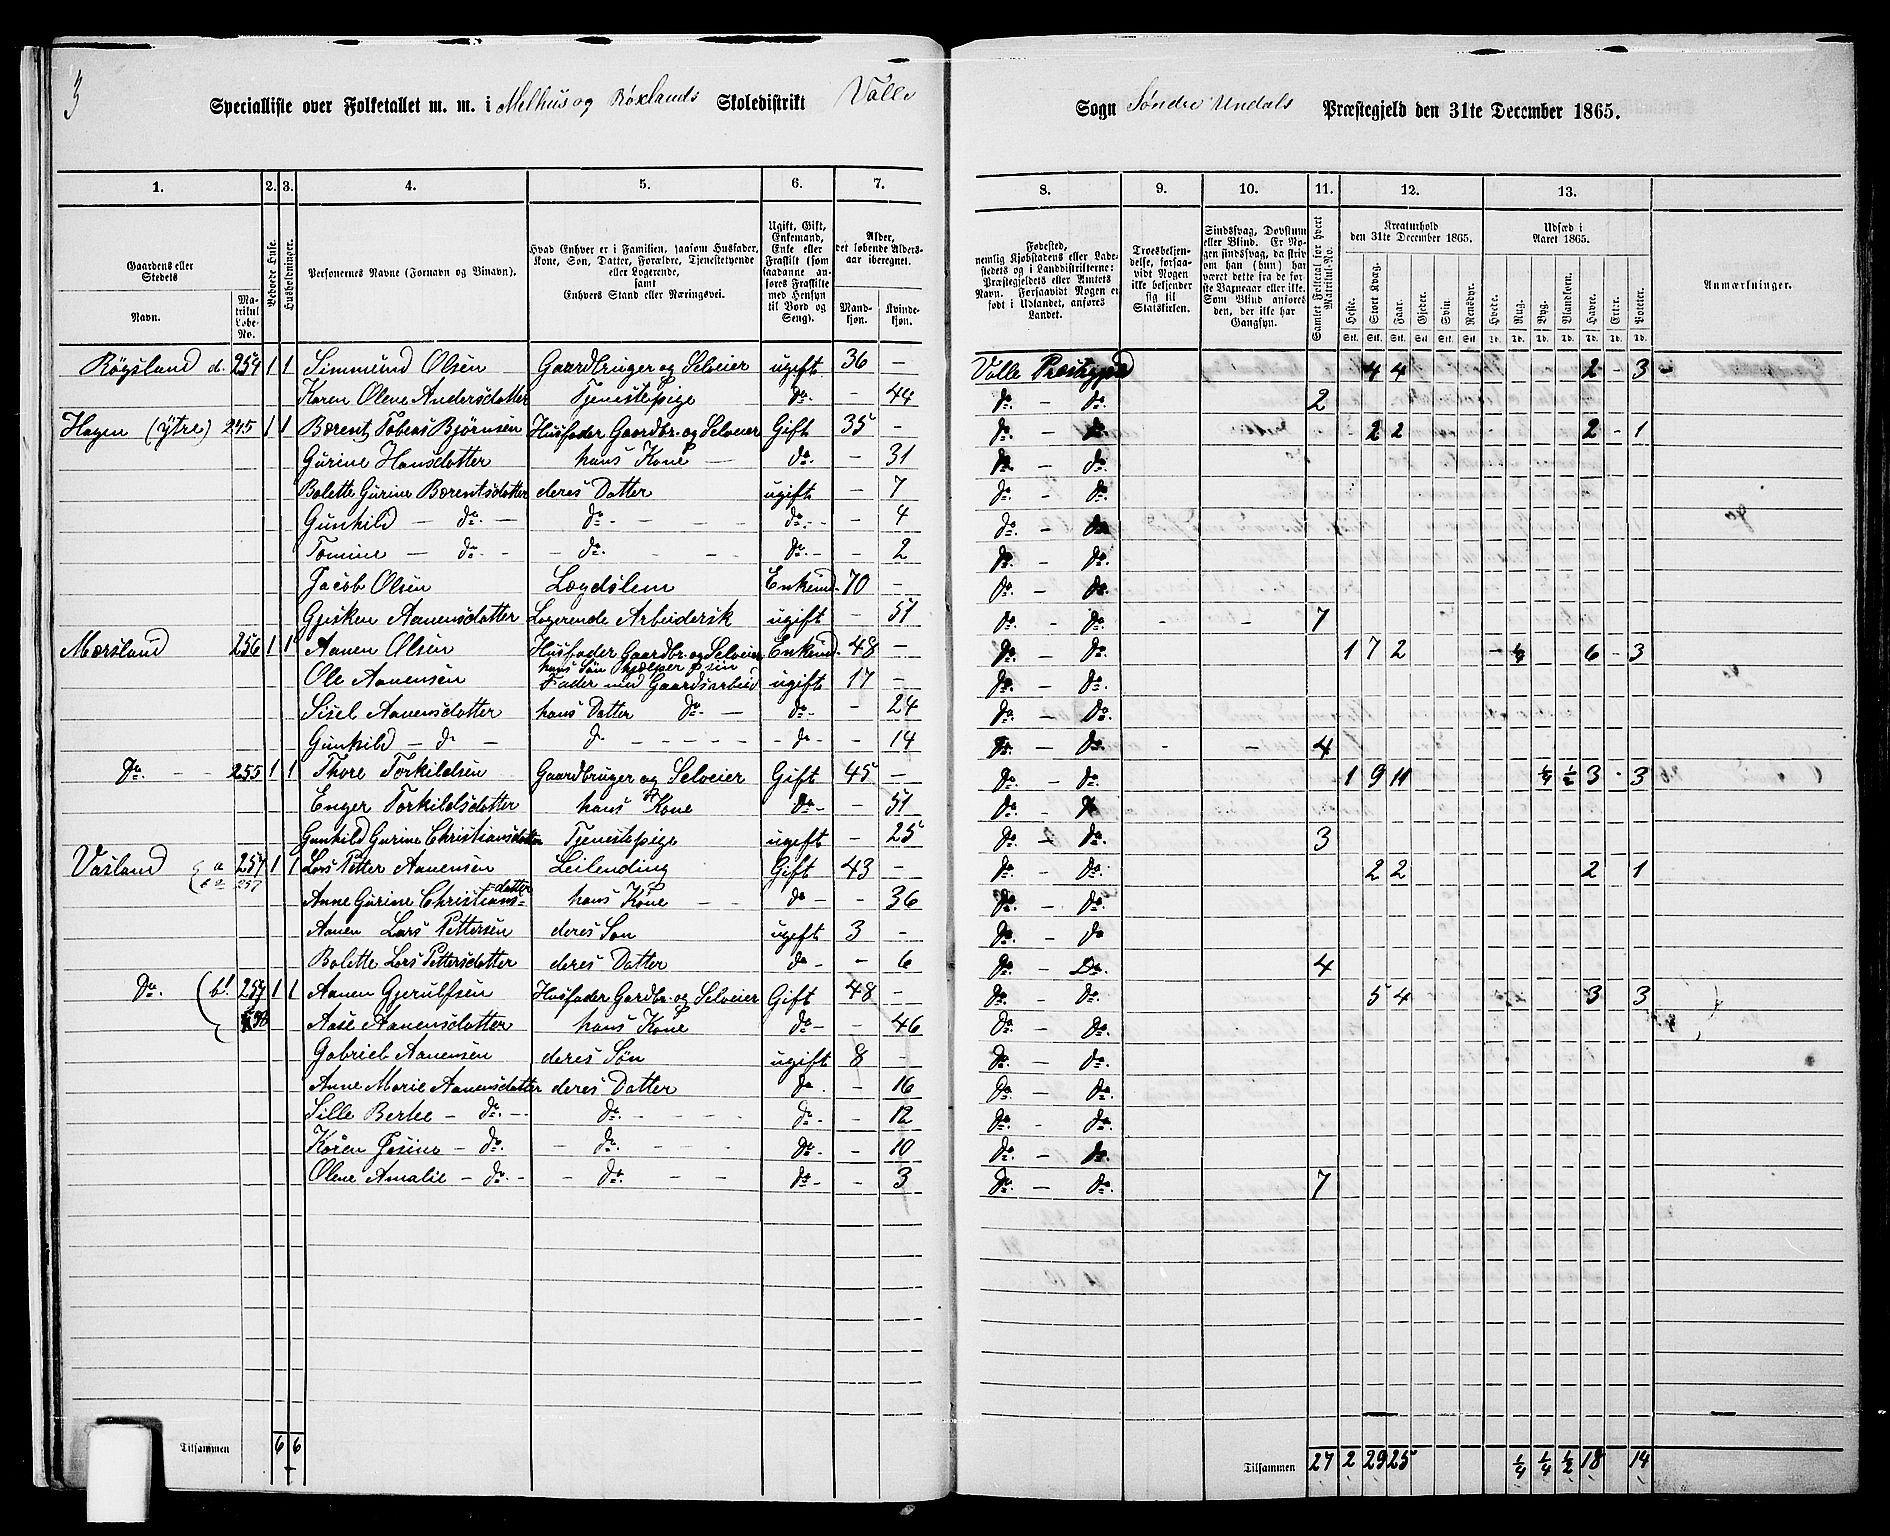 3
Specialliste over Folketallet m. m. i Melhus og Røxlands Skoledistrikt Valle
Sogn Søndre Undals Præstegjeld den 31te December 1865.
1. 2. 3. 4. 5. 6. 7.
8. 9. 10. 11. 12. 13.
Gaardens eller Stedets
Navn.
Matrikul Løbe-No.
Beboede Huse.
Husholdninger.
Personernes Navne (Fornavn og Binavn).
Hvad Enhver er i Familien, saasom Husfader, Kone, Søn, Datter, Forældre, Tjenestetyende eller Logerende, samt Enhvers Stand eller Næringsvei.
Ugift, Gift, Enkemand, Enke eller Fraskilt (som saadanne anføres Fraskilte med Hensyn til Bord og Seng).
Alder, det løbende Aldersaar iberegnet.
Mandkjøn. Kvindekjøn.
Fødested, nemlig Kjøbstadens eller Ladestedets og i Landdistrikterne: Præstegjeldets eller Amtets Navn. Forsaavidt Nogen er født i Udlandet, anføres Landet.
Troesbekjendelse, forsaavidt Nogen ikke bekjender sig til Statskirken.
Sindssvag, Døvstum eller Blind. Er Nogen sindssvag, da skrives om han (hun) har været dette fra de første Barneaar eller ikke. Som Blind anføres den, der ikke har Gangsyn.
Samlet Folketal for hvert Matrikul-No.
Kreaturhold den 31te December 1865.
Heste. Stort Kvæg. Faar. Gjeder. Svin. Rensdyr.
Udsæd i Aaret 1865.
Hvede. Rug. Byg. Blandkorn. Havre. Erter. Poteter.
Anmærkninger.
Røysland d. 254 1 1 Simmund Olsen Gaardbruger og Selveier ugift 36 - Valle Præstegjæld 4 4 2 - 3
Karen Olene Andersdatter Tjenestepige do - 44 do - do. 2
Hagen (ytre) 245 1 1 Bærent Tobias Bjørnsen Husfader Gaardbr. og Selveier Gift 35 - do - do 2 2 2 - 1
Gurine Hansdatter hans Kone - do. - 31 do - do.
Bolette Gurine Bærentsdatter deres Datter ugift - 7 do - do.
Gunhild - do. - do - - - do - - 4 do - do
Tomine - do - - do. - - do. - - 2 do - do.
Jacob Olsen Lægdslem Enkemd. 70 - do - do.
Gjesken Aanensdatter Logerende Arbeidersk ugift - 51 do - do. - - 7
Mærsland 256 1 1 Aanen Olsen Husfader Gaardbr. og Selveier Enkemd. 48 - do - do. 1 7 2 - ¼ 6 - 3
Ole Aanensen hans Søn hjælper sin Fader med Gaardsarbeid ugift 17 - do. - do.
Sisel Aanensdatter hans Datter do - do - - 24 do. - do.
Gunhild - do - do - - - - - - do - - 14 do. - do. - - 4
do. - - 255 1 1 Thore Torkildsen Gaardbruger og Selveier Gift 45 - do - do. 1 9 11 ¼ ½ 3 - 3
Enger Torkildsdatter hans Kone do - - 51 do. - do
Gunhild Gurine Christiansdatter Tjenestepige ugift - 25 do - do. 3
Vasland a 257 1 1 Lars Petter Aanensen Leilending Gift 43 - do - do. 2 2 2 1
257
Anne Gurine Christiansdatter hans Kone - - do - - 36 do. - do.
Aanen Lars Pettersen deres Søn ugift 3 - do. - do
Bolette Lars Pettersdatter deres Datter do - - 6 do. - Do. 4
do. (b. 257 1 1 Aanen Gjerulfsen Husfader Gardbr. og Selveier Gift - 48 - do - do. 5 4 3 3
Aase Aanensdatter hans Kone do - - 46 do. - do.
Gabriel Aanensen deres Søn ugift 8 - do - do.
Anne Marie Aanensdatter deres Datter do. - 16 do. - do.
Sille Berte - do. - do. - - - do - - 12 do. - do.
Karen Josine - do. - do. - - do. - - 10 do. - do.
Olene Amalie - do. - - do. - - do - - 3 do. - do. 7
Tilsammen 6 6
Tilsammen 27 2 29 25 ¼ ¼ ½ 18 14